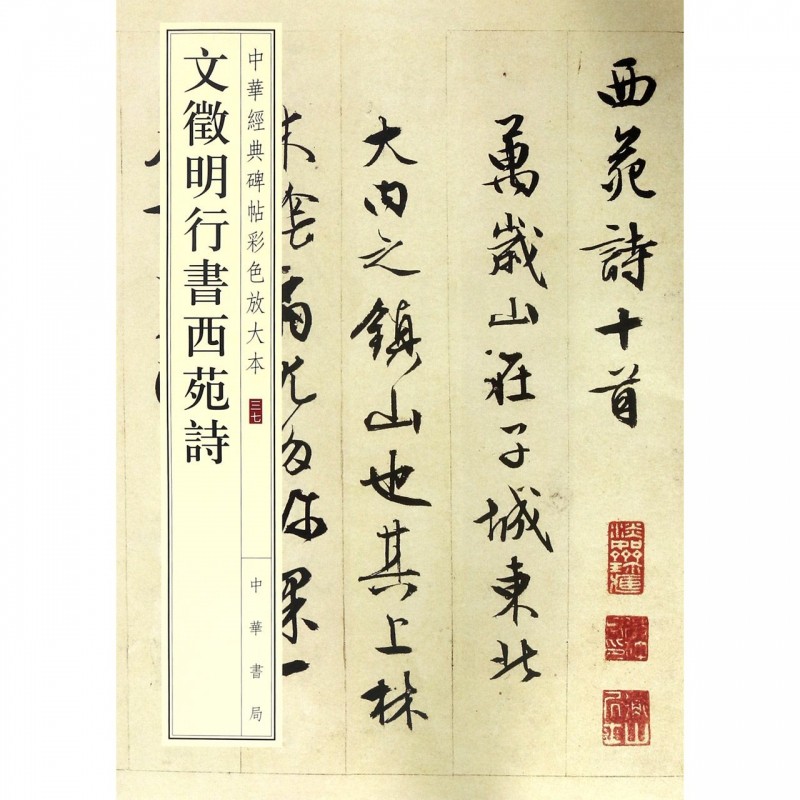 西苑詩十首
萬歲山在子城東北
大内之鎮山也其上林
木陰翳尤多珎果一
中華經典碑帖彩色放大本
三七
中華書局
文徵明行書西苑詩